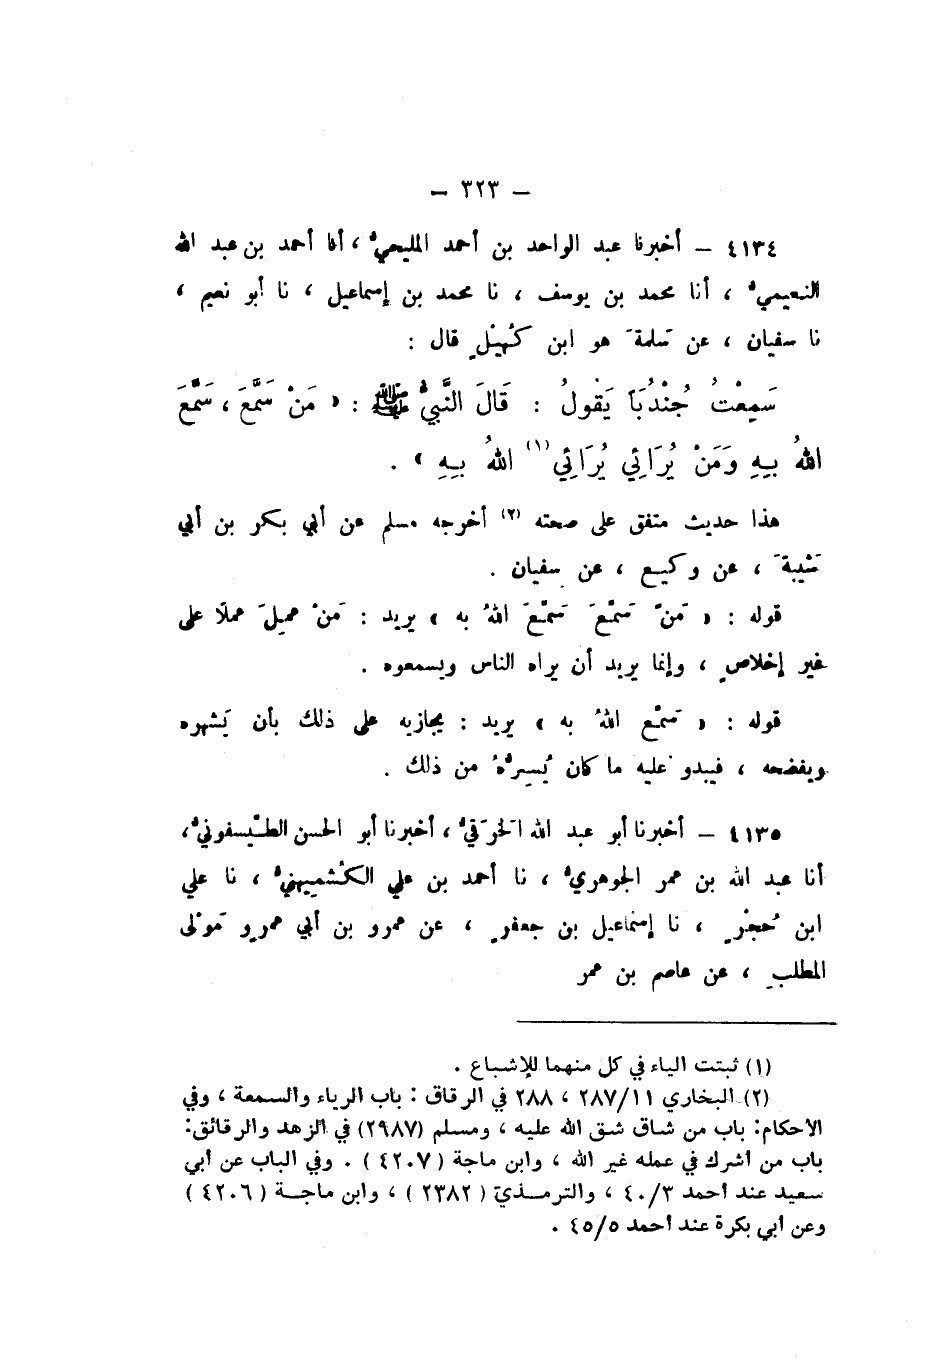 – ٣٢٣ –
٤١٣٤ – أخبرنا عبد الواحد بن أحمد المليحيُّ ، أنا أحمد بن عبد الله
النعيميُّ ، أنا محمد بن يوسف ، نا محمد بن إسماعيل ، نا أبو نعيم ،
نا سفيان ، عن سَلمةَ هو ابن كُهَيْلٍ قال :
سَمِعْتُ جُنْدُبَاً يَقُولُ : قَالَ النَّبِيُّ ﷺ : « مَنْ سَمَّعَ ، سَمَّعَ
اللهُ بِهِ وَمَنْ يُرَائِي يُرَائِي (١) اللهُ بِهِ » .
هذا حديث متفق على صحته (٢) أخرجه مسلم عن أبي بكر بن أبي
شَيبةَ ، عن وكيع ، عن سفيان .
قوله : « مَنْ سَمَّعَ سَمَّعَ اللهُ به » يريد : مَنْ عَمِلَ عملًا على
غير إخلاصٍ ، وإنما يريد أن يراه الناس ويسمعوه .
قوله : « سَمَّع اللهُ به » يريد : يجازيه على ذلك بأن يَشهره
ويفضحه ، فيبدو عليه ما كان يُسِرُّهُ من ذلك .
٤١٣٥ – أخبرنا أبو عبد الله الخِرَقيُّ ، أخبرنا أبو الحسن الطَّيسفونيُّ ،
أنا عبد الله بن عمر الجوهريُّ ، نا أحمد بن علي الكُشميهنيُّ ، نا علي
ابن حُجْرٍ ، نا إسماعيل بن جعفرٍ ، عن عمرو بن أبي عمرٍو مَوْلى
المطلبِ ، عن عاصم بن عمر
(١) ثبتت الياء في كل منهما للإشباع .
(٢) البخاري ٢٨٧/١١ ، ٢٨٨ في الرقاق : باب الرياء والسمعة ، وفي
الأحكام: باب من شاق شق الله عليه ، ومسلم (٢٩٨٧) في الزهد والرقائق:
باب من أشرك في عمله غير الله ، وابن ماجة ( ٤٢٠٧ ) . وفي الباب عن أبي
سعيد عند أحمد ٤٠/٣ ، والترمذي ( ٢٣٨٢ ) ، وابن ماجة ( ٤٢٠٦ )
وعن أبي بكرة عند أحمد ٤٥/٥ .